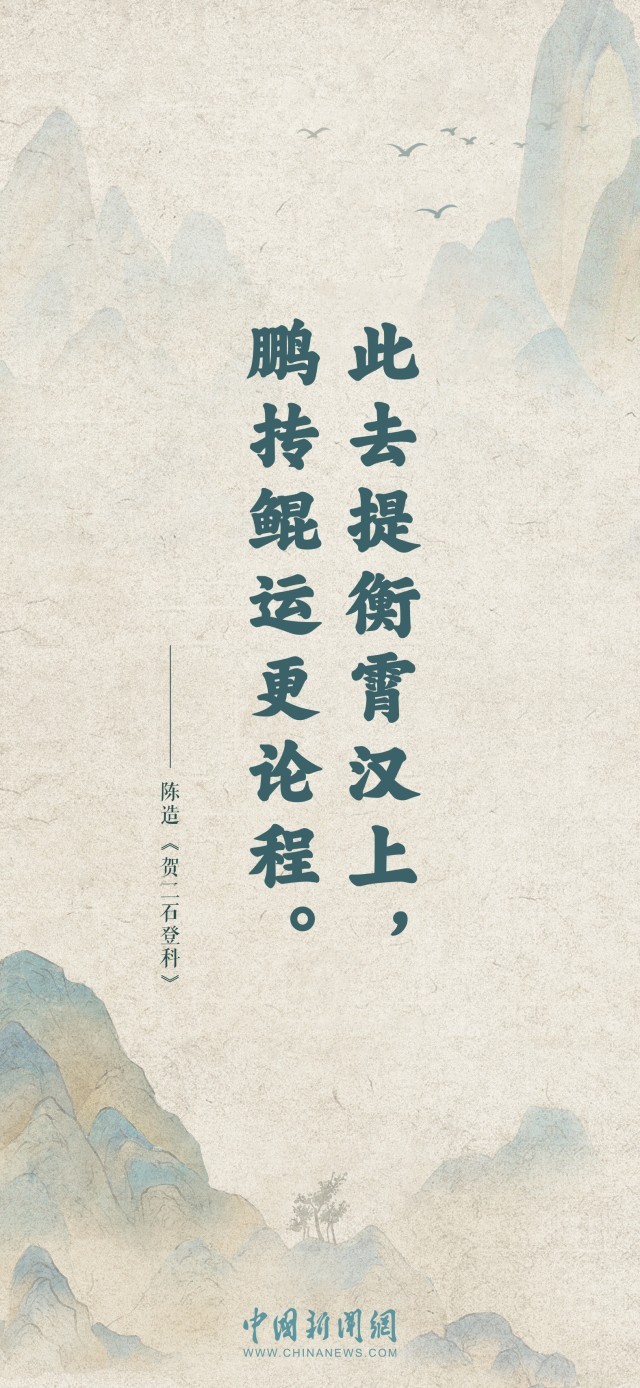 此去提衡霄汉上，
鹏抟鲲运更论程。
——陈造《贺二石登科》
中国新闻網
WWW.CHINANEWS.COM